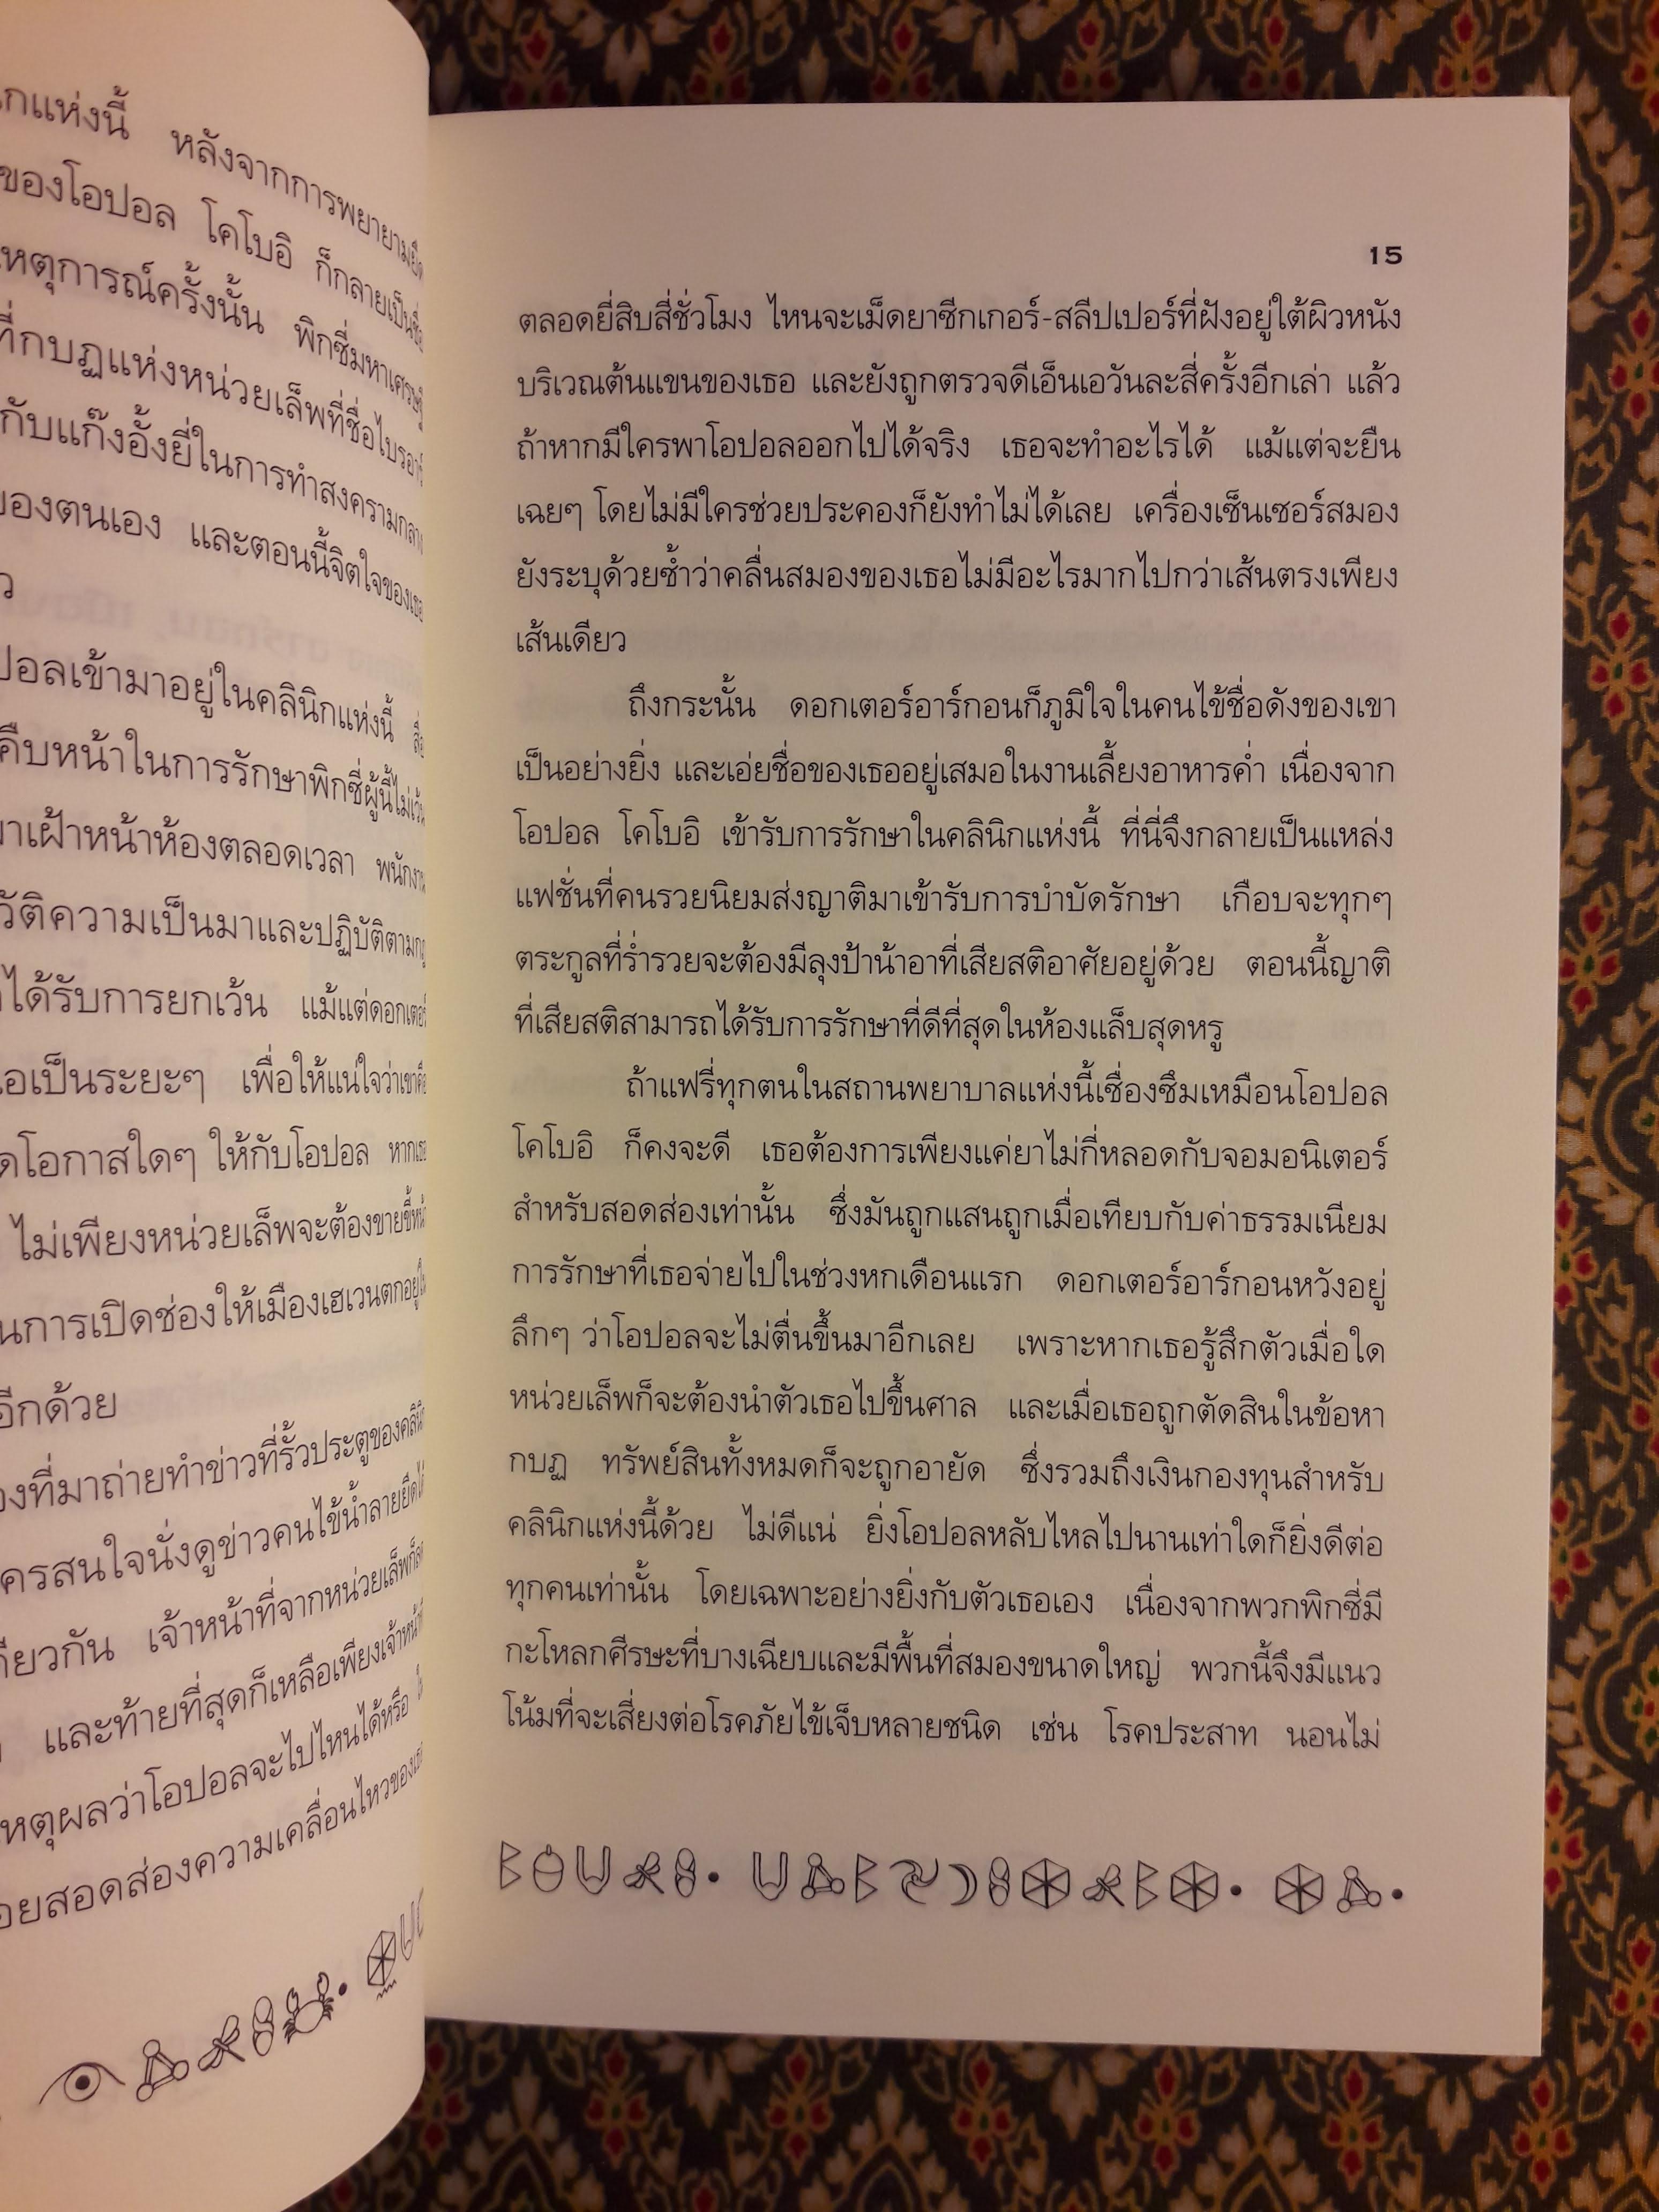 กแห่งนี้ หลังจากการพยายามยึด
ของโอปอล โคโบอิ ก็กลายเป็นชื่อ
หตุการณ์ครั้งนั้น พิกซี่มหาเศรษฐี
ที่กบฏแห่งหน่วยเล็พที่ชื่อไบรอาร์
กับแก๊งอั้งยี่ในการทำสงครามกลาง
ของตนเอง และตอนนี้จิตใจของเธอ
ว
ปอลเข้ามาอยู่ในคลินิกแห่งนี้ สื่อ
คืบหน้าในการรักษาพิกซี่ผู้นี้ไม่เว้น
มาเฝ้าหน้าห้องตลอดเวลา พนักงาน
วัติความเป็นมาและปฏิบัติตามกฎ
ได้รับการยกเว้น แม้แต่ดอกเตอร์
อเป็นระยะๆ เพื่อให้แน่ใจว่าเขาคือ
ดโอกาสใดๆ ให้กับโอปอล หากเธอ
ไม่เพียงหน่วยเล็พจะต้องขายขี้หน้า
นการเปิดช่องให้เมืองเฮเวนตกอยู่ใน
อีกด้วย
องที่มาถ่ายทำข่าวที่รั้วประตูของคลินิก
ครสนใจนั่งดูข่าวคนไข้น้ำลายยืดได้
ดียวกัน เจ้าหน้าที่จากหน่วยเล็พก็ลด
และท้ายที่สุดก็เหลือเพียงเจ้าหน้าที่
หตุผลว่าโอปอลจะไปไหนได้หรือ
อยสอดส่องความเคลื่อนไหวของเธอ
15
ตลอดยี่สิบสี่ชั่วโมง ไหนจะเม็ดยาซีกเกอร์-สลีปเปอร์ที่ฝังอยู่ใต้ผิวหนัง
บริเวณต้นแขนของเธอ และยังถูกตรวจดีเอ็นเอวันละสี่ครั้งอีกเล่า แล้ว
ถ้าหากมีใครพาโอปอลออกไปได้จริง เธอจะทำอะไรได้ แม้แต่จะยืน
เฉยๆ โดยไม่มีใครช่วยประคองก็ยังทำไม่ได้เลย เครื่องเซ็นเซอร์สมอง
ยังระบุด้วยซ้ำว่าคลื่นสมองของเธอไม่มีอะไรมากไปกว่าเส้นตรงเพียง
เส้นเดียว
ถึงกระนั้น ดอกเตอร์อาร์กอนก็ภูมิใจในคนไข้ชื่อดังของเขา
เป็นอย่างยิ่ง และเอ่ยชื่อของเธออยู่เสมอในงานเลี้ยงอาหารค่ำ เนื่องจาก
โอปอล โคโบอิ เข้ารับการรักษาในคลินิกแห่งนี้ ที่นี่จึงกลายเป็นแหล่ง
แฟชั่นที่คนรวยนิยมส่งญาติมาเข้ารับการบำบัดรักษา เกือบจะทุกๆ
ตระกูลที่ร่ำรวยจะต้องมีลุงป้าน้าอาที่เสียสติอาศัยอยู่ด้วย ตอนนี้ญาติ
ที่เสียสติสามารถได้รับการรักษาที่ดีที่สุดในห้องแล็บสุดหรู
ถ้าแฟรี่ทุกตนในสถานพยาบาลแห่งนี้เชื่องซึมเหมือนโอปอล
โคโบอิ ก็คงจะดี เธอต้องการเพียงแค่ยาไม่กี่หลอดกับจอมอนิเตอร์
สำหรับสอดส่องเท่านั้น ซึ่งมันถูกแสนถูกเมื่อเทียบกับค่าธรรมเนียม
การรักษาที่เธอจ่ายไปในช่วงหกเดือนแรก ดอกเตอร์อาร์กอนหวังอยู่
ลึกๆ ว่าโอปอลจะไม่ตื่นขึ้นมาอีกเลย เพราะหากเธอรู้สึกตัวเมื่อใด
หน่วยเล็พก็จะต้องนำตัวเธอไปขึ้นศาล และเมื่อเธอถูกตัดสินในข้อหา
กบฏ ทรัพย์สินทั้งหมดก็จะถูกอายัด ซึ่งรวมถึงเงินกองทุนสำหรับ
คลินิกแห่งนี้ด้วย ไม่ดีแน่ ยิ่งโอปอลหลับไหลไปนานเท่าใดก็ยิ่งดีต่อ
ทุกคนเท่านั้น โดยเฉพาะอย่างยิ่งกับตัวเธอเอง เนื่องจากพวกพิกซี่มี
กะโหลกศีรษะที่บางเฉียบและมีพื้นที่สมองขนาดใหญ่ พวกนี้จึงมีแนว
โน้มที่จะเสี่ยงต่อโรคภัยไข้เจ็บหลายชนิด เช่น โรคประสาท นอนไม่